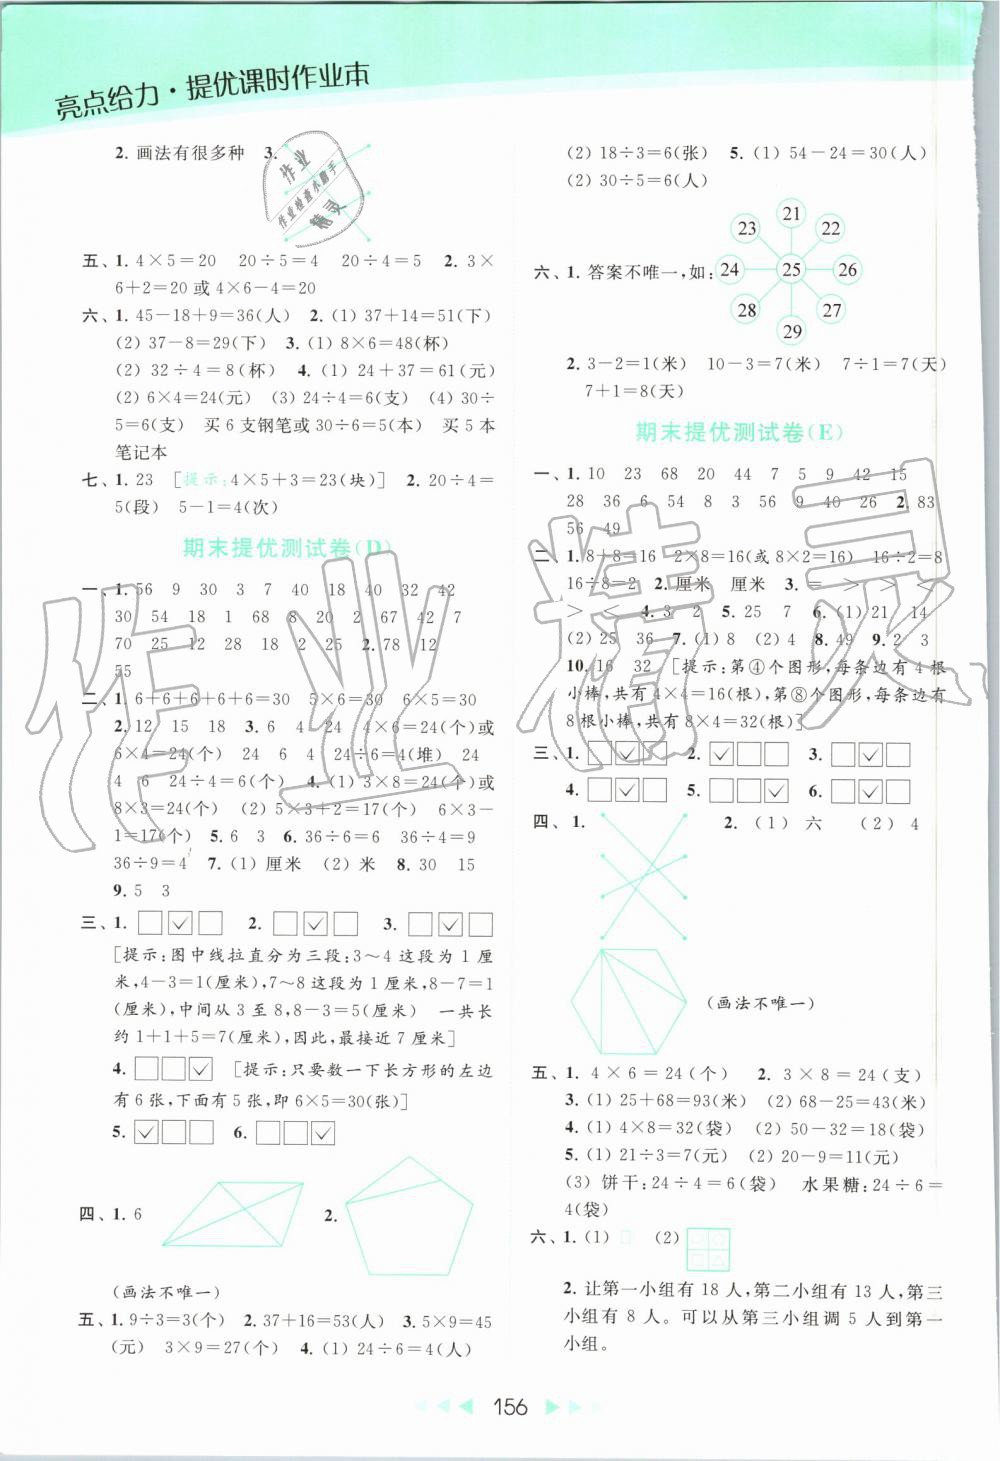 亮点给力·提优课时作业本
2. 画法有很多种 3.
作业
作业检查小助手
精灵
五、1. 4×5=20 20÷5=4 20÷4=5 2. 3×
6+2=20 或 4×6-4=20
六、1. 45-18+9=36(人) 2. (1) 37+14=51(下)
(2) 37-8=29(下) 3. (1) 8×6=48(杯)
(2) 32÷4=8(杯) 4. (1) 24+37=61(元)
(2) 6×4=24(元) (3) 24÷4=6(支) (4) 30÷
5=6(支) 买 6 支钢笔或 30÷6=5(本) 买 5 本
笔记本
七、1. 23 [提示:4×5+3=23(块)] 2. 20÷4=
5(段) 5-1=4(次)
期末提优测试卷(D)
一、1. 56 9 30 3 7 40 18 40 32 42
30 54 18 1 68 8 20 2 67 42 7
70 25 12 28 18 25 2. 78 12
55
二、1. 6+6+6+6+6=30 5×6=30 6×5=30
2. 12 15 18 3. 6 4 24 4×6=24(个)或
6×4=24(个) 24 6 4 24÷6=4(堆) 24
4 6 24÷4=6(个) 4. (1) 3×8=24(个)或
8×3=24(个) (2) 5×3+2=17(个) 6×3-
1=17(个) 5. 6 3 6. 36÷6=6 36÷4=9
36÷9=4 7. (1) 厘米 (2) 米 8. 30 15
9. 5 3
三、1. □☑□ 2. □☑□ 3. □☑□
[提示:图中线拉直分为三段:3～4 这段为 1 厘
米,4-3=1(厘米),7～8 这段为 1 厘米,8-7=1
(厘米),中间从 3 至 8,8-3=5(厘米) 一共长
约 1+1+5=7(厘米),因此,最接近 7 厘米]
4. □□☑ [提示:只要数一下长方形的左边
有 6 张,下面有 5 张,即 6×5=30(张)]
5. ☑□□ 6. □□☑
四、1. 6 2.
(画法不唯一)
五、1. 9÷3=3(个) 2. 37+16=53(人) 3. 5×9=45
(元) 3×9=27(个) 4. (1) 24÷6=4(人)
(2) 18÷3=6(张) 5. (1) 54-24=30(人)
(2) 30÷5=6(人)
六、1. 答案不唯一,如:
21
23 22
24 25 26
28 27
29
2. 3-2=1(米) 10-3=7(米) 7÷1=7(天)
7+1=8(天)
期末提优测试卷(E)
一、1. 10 23 68 20 44 7 5 9 42 15
28 36 6 54 8 3 56 9 40 26 2. 83
56 49
二、1. 8+8=16 2×8=16(或 8×2=16) 16÷2=8
16÷8=2 2. 厘米 厘米 3. = > > <
> < 4. 3 2 5. 25 7 6. (1) 21 14
(2) 25 36 7. (1) 8 (2) 4 8. 49 9. 2 3
10. 16 32 [提示:第④个图形,每条边有 4 根
小棒,共有 4×4=16(根),第⑧个图形,每条边有
8 根小棒,共有 8×4=32(根)]
三、1. □☑□ 2. ☑□□ 3. □☑□
4. □☑□ 5. □□☑ 6. □☑□
四、1. 2. (1) 六 (2) 4
(画法不唯一)
五、1. 4×6=24(个) 2. 3×8=24(支)
3. (1) 25+68=93(米) (2) 68-25=43(米)
4. (1) 4×8=32(袋) (2) 50-32=18(袋)
5. (1) 21÷3=7(元) (2) 20-9=11(元)
(3) 饼干:24÷4=6(袋) 水果糖:24÷6=
4(袋)
六、1. (1) □ (2)
2. 让第一小组有 18 人,第二小组有 13 人,第三
小组有 8 人。可以从第三小组调 5 人到第一
小组。
156
作业精灵